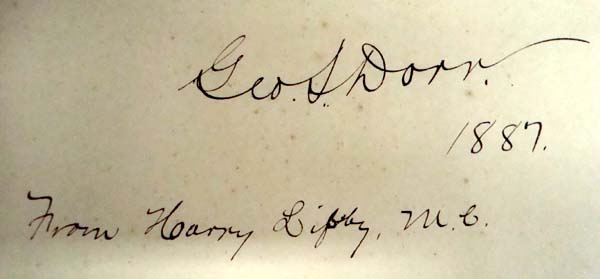 Geo. S. Dorr.
1887.
From Harry Libby, M.C.